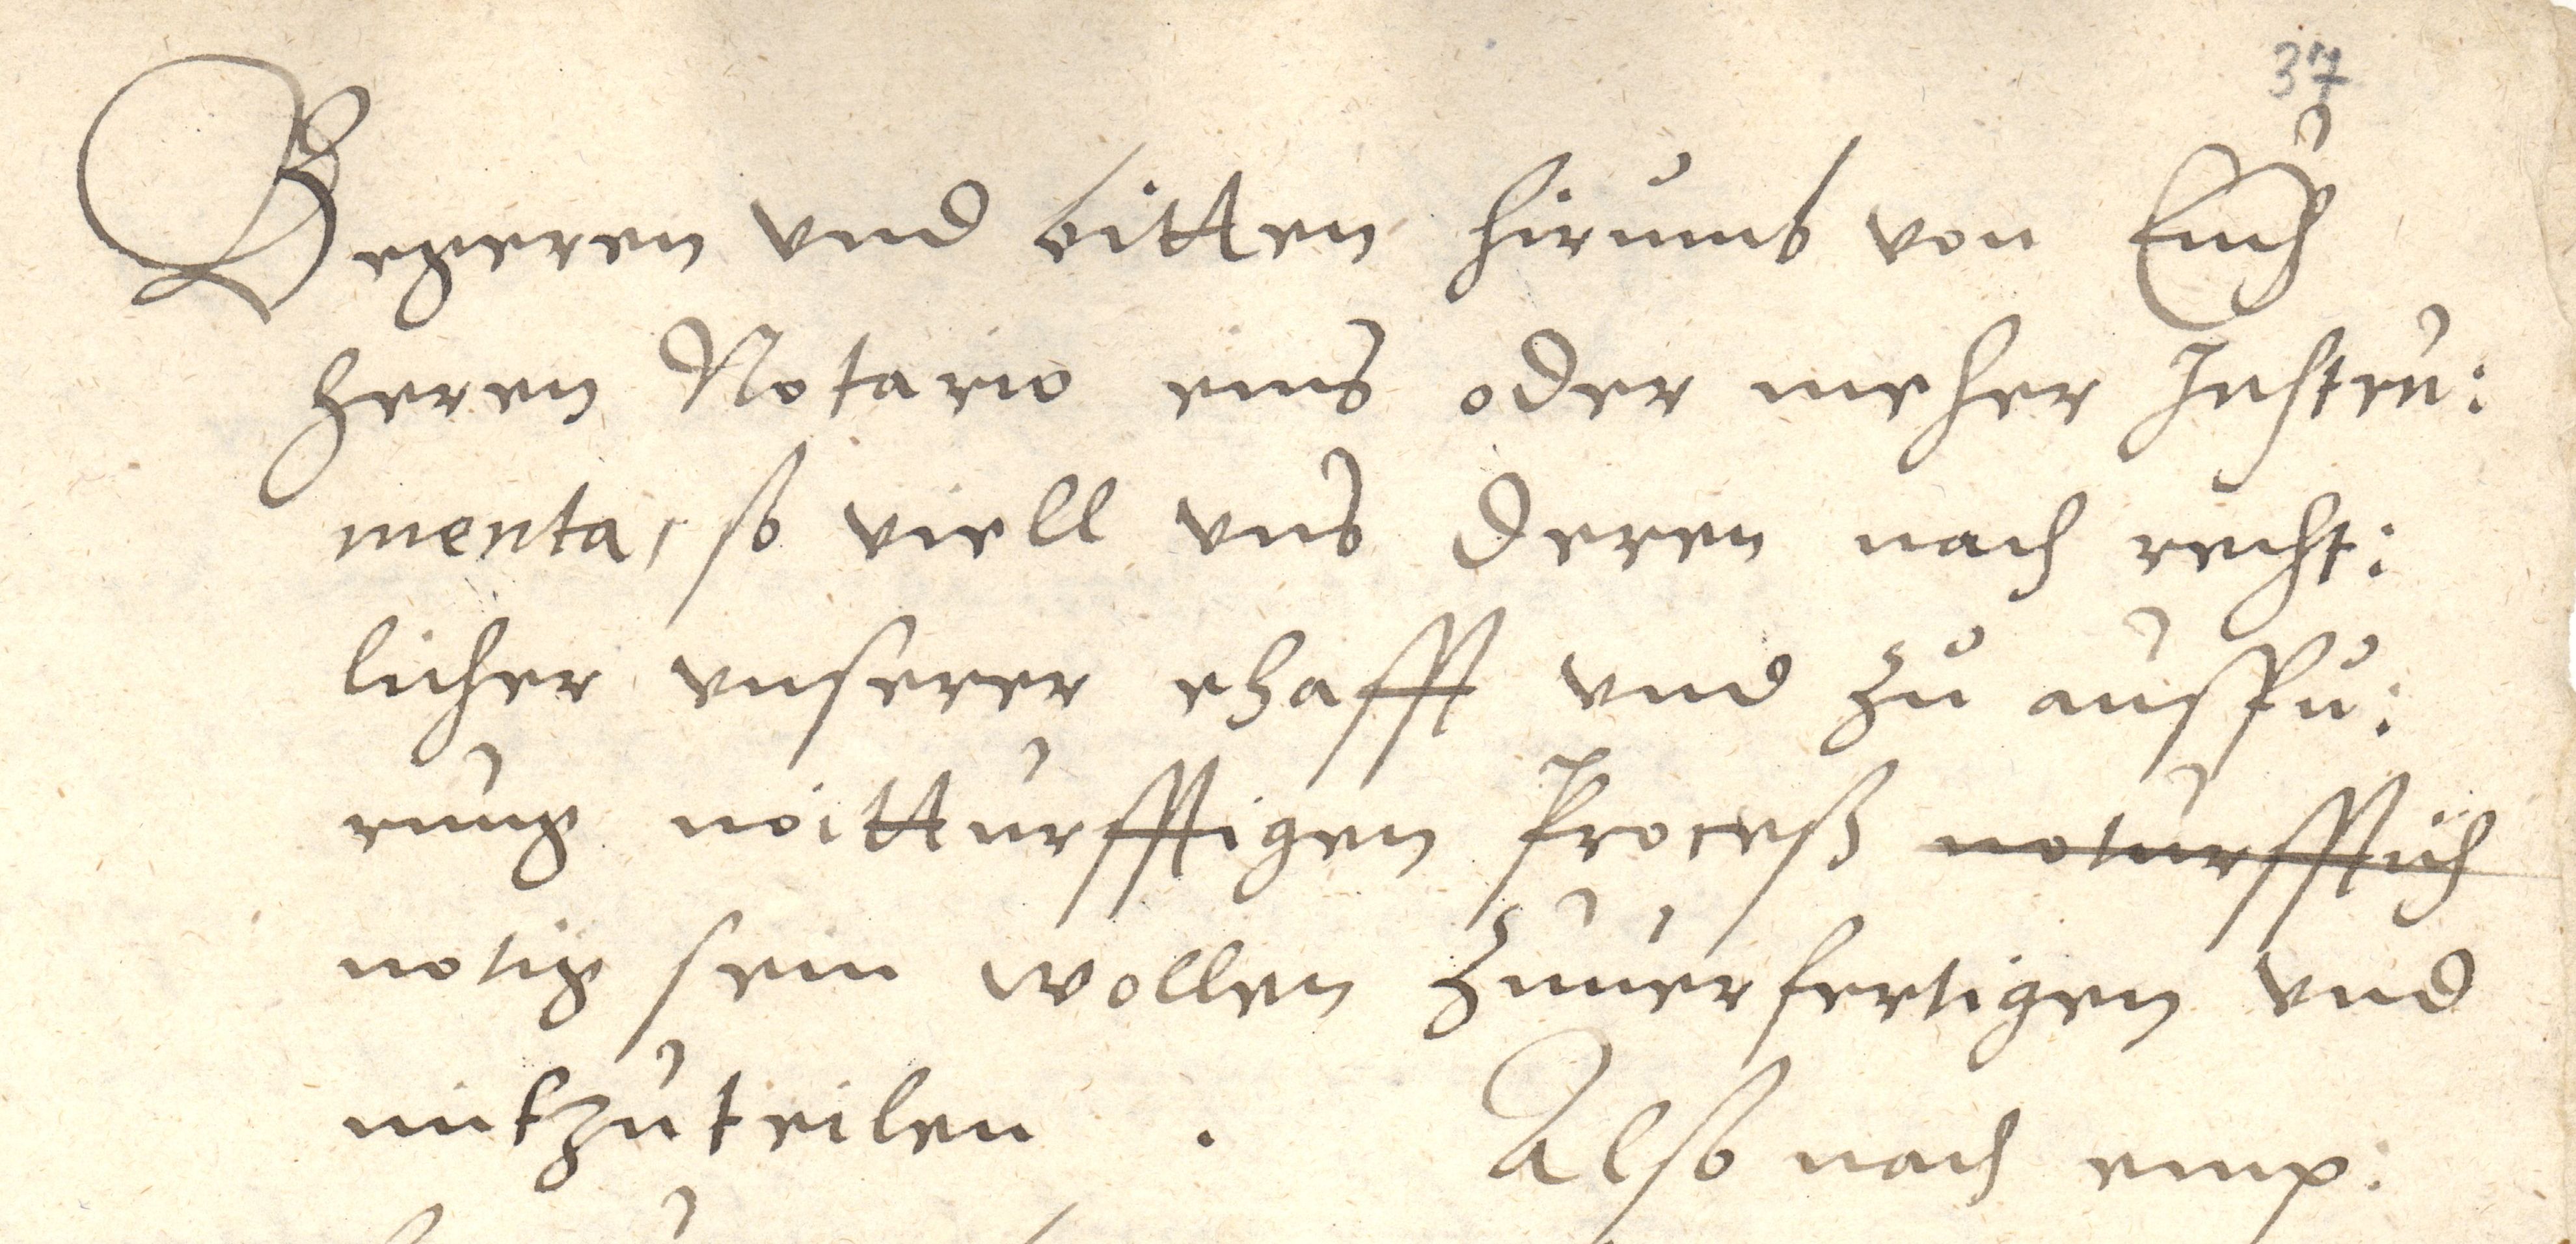 37
Begeren vnd bitten hirumb von Euch
Heren Notario eins oder meher Instru:
menta, so viell vns deren nach recht:
licher vnserer ehafft vnd zu ausfu:
rung noitturfftigen Proceß noturfftich
notig sein wollen zuuerfertigen vnd
mitzuteilen . Also nach emp: